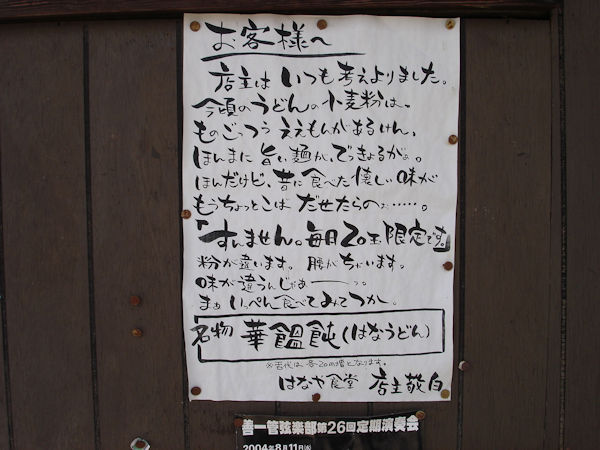 お客様へ
店主は いつも考えよりました。
今頃のうどんの小麦粉は、
ものごっつう ええもんがあるけん、
ほんまに 旨い麺が、でっきょるがぁ。
ほんだけど、昔に食べた懐しい味が
もうちょっとこば だせたらのぉ……。
「すんません。毎日20玉限定です。」
粉が違います。腰がちがいます。
味が違うんじゃぁーっ。
まぁ いっぺん食べてみてつか。
名物 華饂飩(はなうどん)
はなや食堂 店主敬白
善一管弦楽部第26回定期演奏会
2004年8月11日㈬